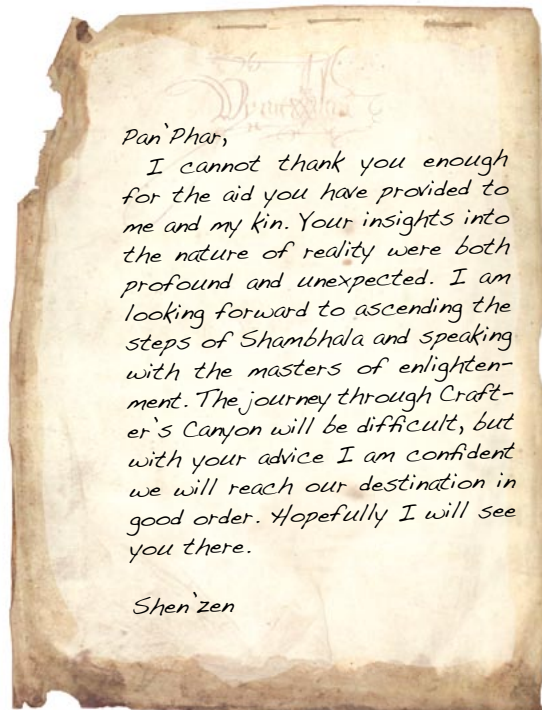 Pan'Phar,
I cannot thank you enough
for the aid you have provided to
me and my kin. Your insights into
the nature of reality were both
profound and unexpected. I am
looking forward to ascending the
steps of Shambhala and speaking
with the masters of enlighten-
ment. The journey through Craft-
er's Canyon will be difficult, but
with your advice I am confident
we will reach our destination in
good order. Hopefully I will see
you there.
Shen'zen